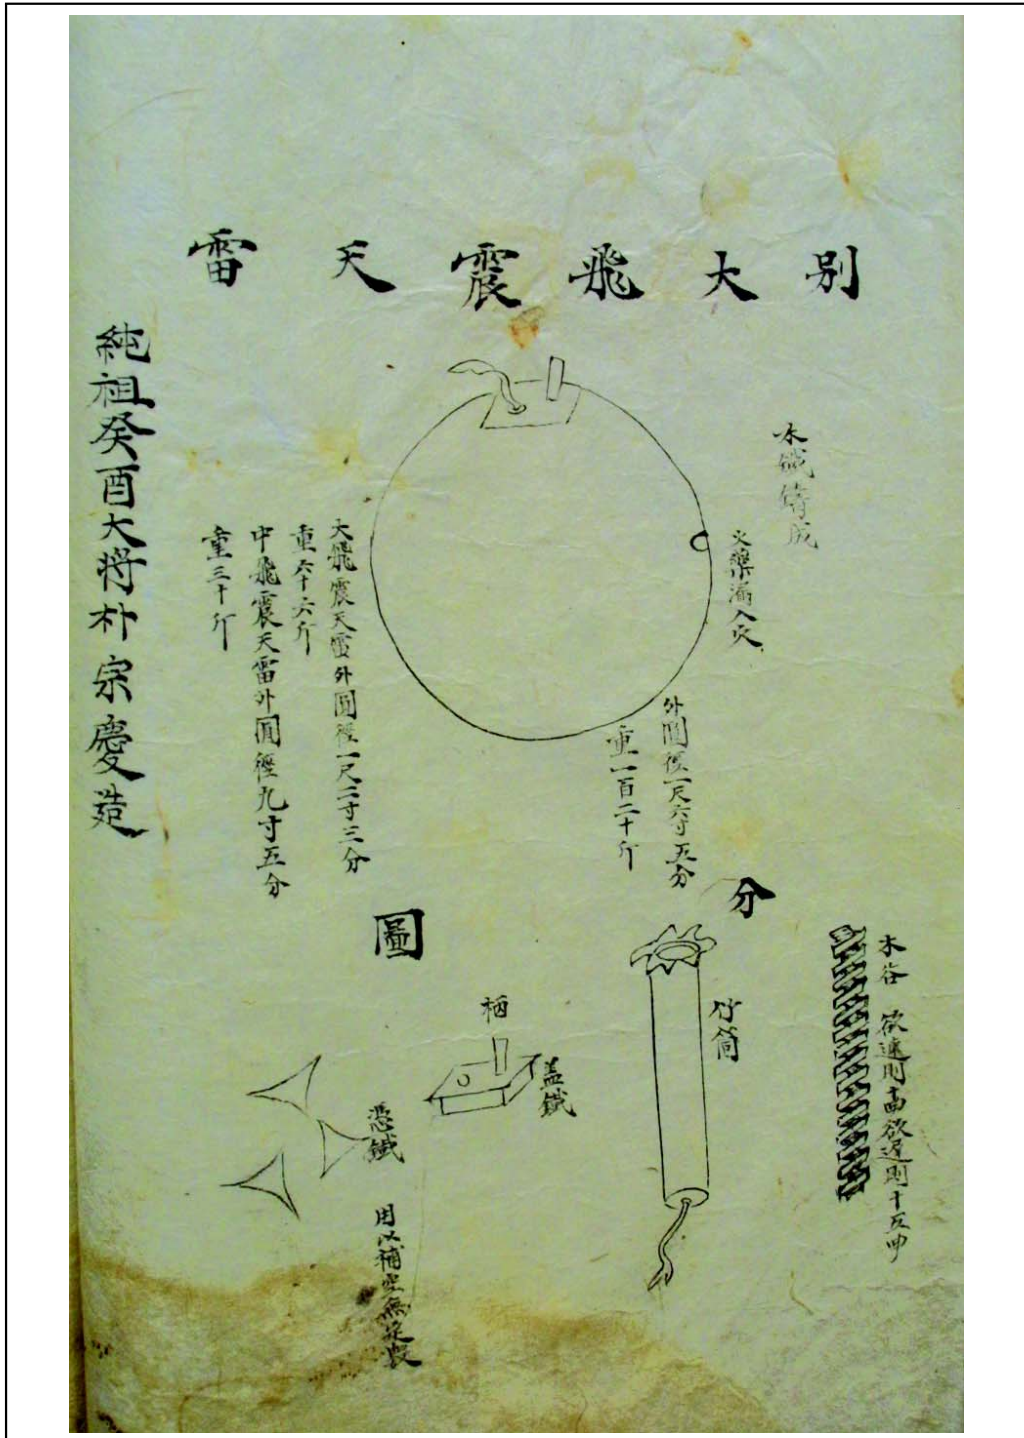 別大飛震天雷
水鐵鑄成
火藥漏入穴
外圓徑一尺六寸五分
重一百二十斤
大飛震天雷外圓徑一尺二寸三分
重六十六斤
中飛震天雷外圓徑九寸五分
重三十斤
純祖癸酉大將朴宗慶造
分圖
木谷 欲速則十曲欲遲則十五曲
竹筒
盖鐵
柄
憑鐵
用以補空無定數